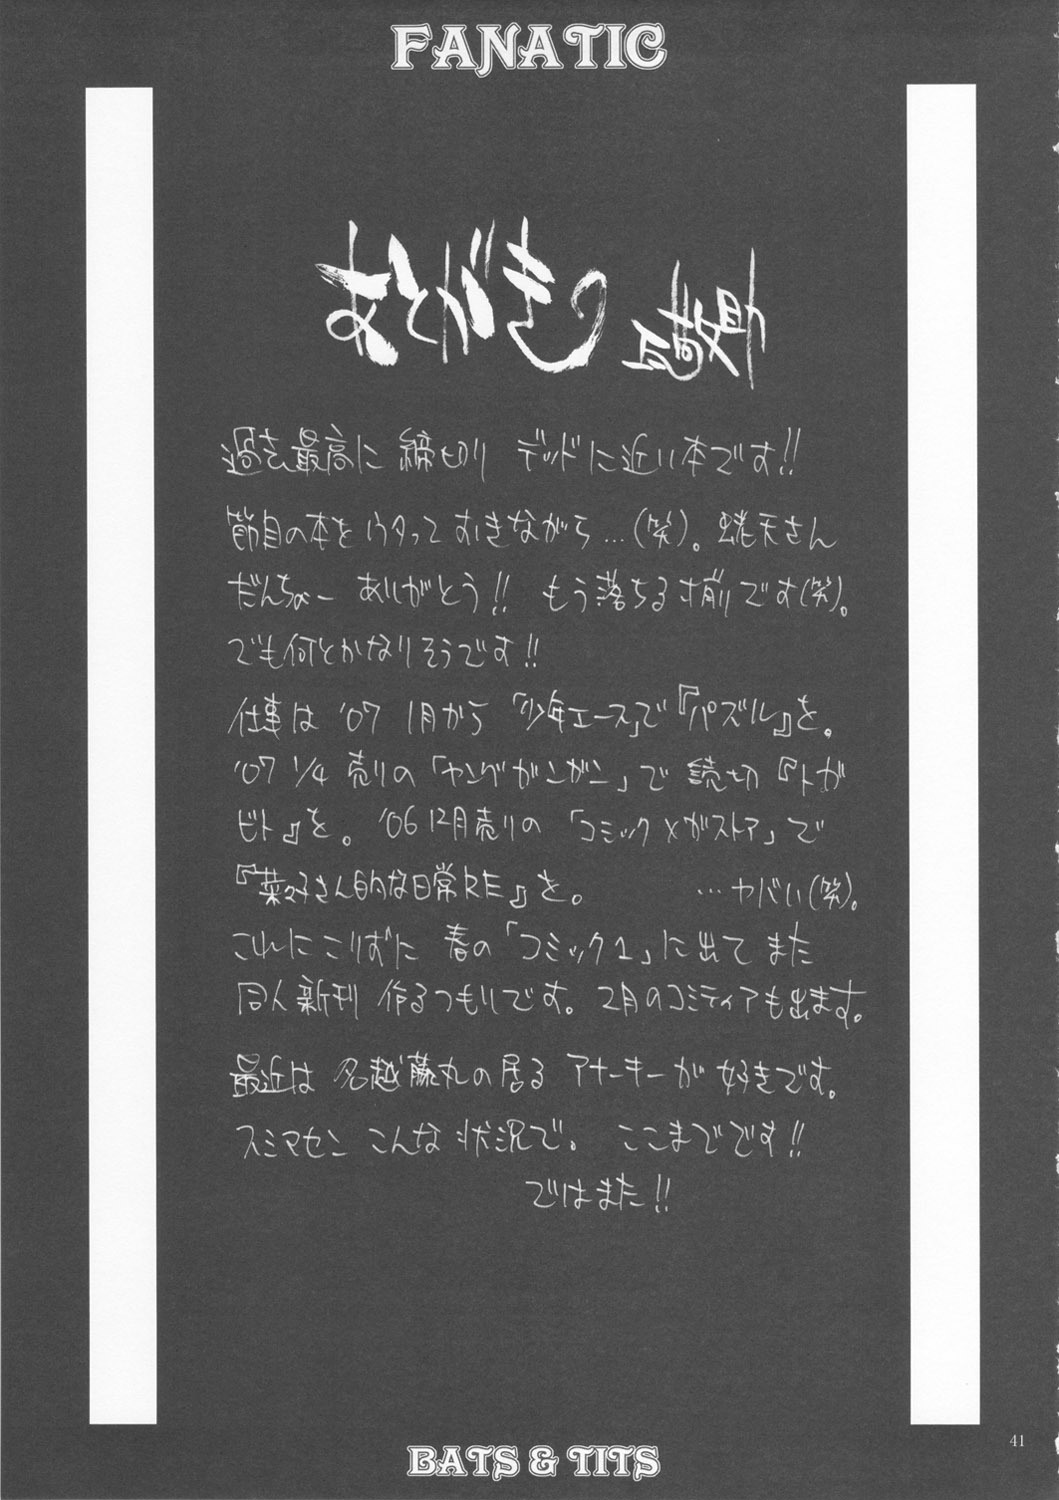 FANATIC
あとがき
過去最高に 締切り デッドに近い本です!!
節目の本を ウタって おきながら…(笑)。 天さん
だんちょー ありがとう!! もう落ちる寸前です(笑)。
でも何とかなりそうです!!
仕事は '07 1月から 「少年エース」で『パズル』を。
'07 1/4 売りの 「ヤングガンガン」で 読切『トガ
ビト』を。 '06 12月売りの 「コミック×ガストア」で
『菜々子さん的な日常RE』を。 …ヤバい(笑)。
これにこりずに 春の「コミック1」に出て また
同人新刊 作るつもりです。 2月のコミティアも出ます。
最近は 名越藤丸の居る アナーキーが 好きです。
スミマセン こんな 状況で。 ここまでです!!
ではまた!!
BATS & TITS
41